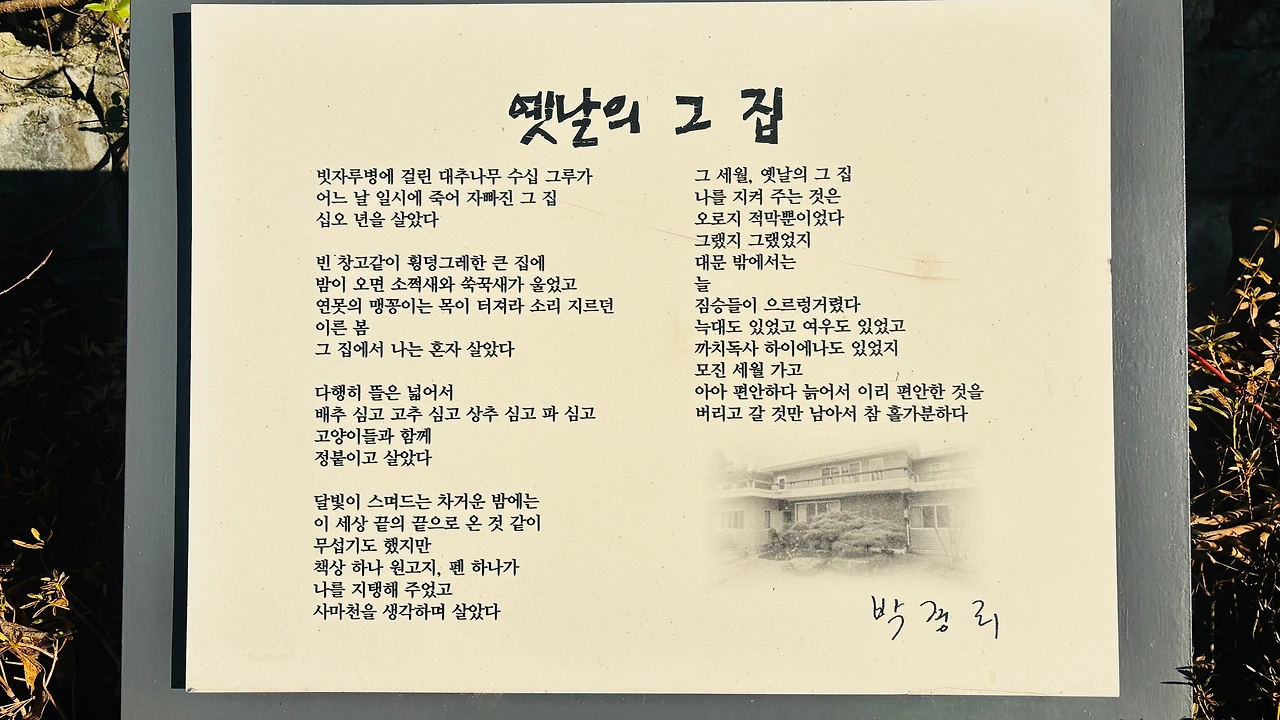 옛날의 그 집
빗자루병에 걸린 대추나무 수십 그루가
어느 날 일시에 죽어 자빠진 그 집
십오 년을 살았다
빈 창고같이 휑뎅그레한 큰 집에
밤이 오면 소쩍새와 쑥꾹새가 울었고
연못의 맹꽁이는 목이 터져라 소리 지르던
이른 봄
그 집에서 나는 혼자 살았다
다행히 뜰은 넓어서
배추 심고 고추 심고 상추 심고 파 심고
고양이들과 함께
정붙이고 살았다
달빛이 스며드는 차거운 밤에는
이 세상 끝의 끝으로 온 것 같이
무섭기도 했지만
책상 하나 원고지, 펜 하나가
나를 지탱해 주었고
사마천을 생각하며 살았다
그 세월, 옛날의 그 집
나를 지켜 주는 것은
오로지 적막뿐이었다
그랬지 그랬었지
대문 밖에서는
늘
짐승들이 으르렁거렸다
늑대도 있었고 여우도 있었고
까치독사 하이에나도 있었지
모진 세월 가고
아아 편안하다 늙어서 이리 편안한 것을
버리고 갈 것만 남아서 참 홀가분하다
박경리